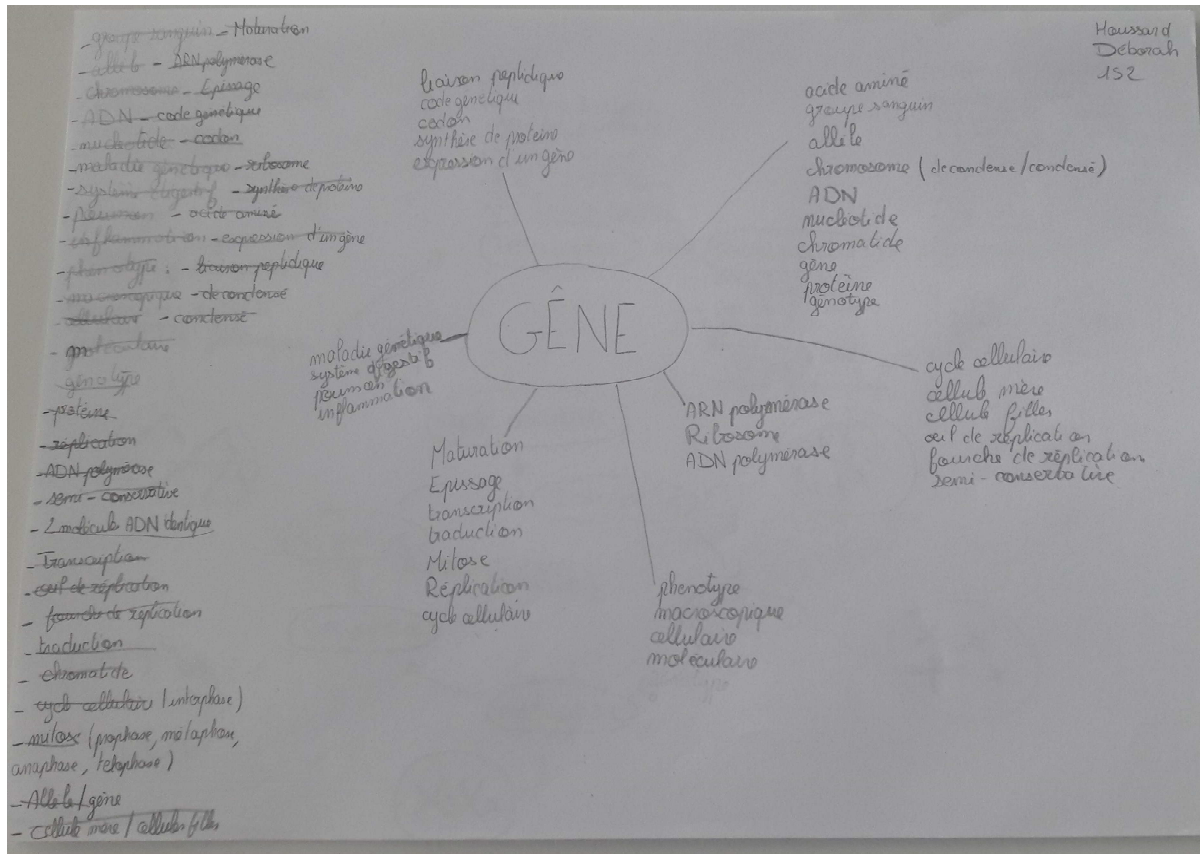 - groupe sanguin - Maturation
- allèle - ARN polymérase
- chromosome - Epissage
- ADN - code génétique
- nucléotide - codon
- maladie génétique - ribosome
- système digestif - synthèse de protéine
- poumon - acide aminé
- inflammation - expression d'un gène
- phénotype : - liaison peptidique
- macroscopique - decondensé
- cellulaire - condensé
- moléculaire
- génotype
- protéine
- réplication
- ADN polymérase
- semi-conservative
- 2 molécule ADN identique
- Transcription
- oeil de réplication
- fourche de réplication
- traduction
- chromatide
- cycle cellulaire (interphase)
- mitose (prophase, métaphase,
anaphase, telophase)
- Allèle/gène
- Cellule mère / cellules filles
liaison peptidique
code génétique
codon
synthèse de proteine
expression d'un gène
Haussard
Déborah
1S2
acide aminé
groupe sanguin
allèle
chromosome (decondense/condensé)
ADN
nucleotide
chromatide
gène
protéine
génotype
GÊNE
maladie génétique
système digestif
poumon
inflammation
cycle cellulaire
cellule mère
cellule filles
oeil de réplication
fourche de réplication
semi-conservative
ARN polymérase
Ribosome
ADN polymérase
Maturation
Epissage
transcription
traduction
Mitose
Réplication
cycle cellulaire
phenotype
macroscopique
cellulaire
moléculaire